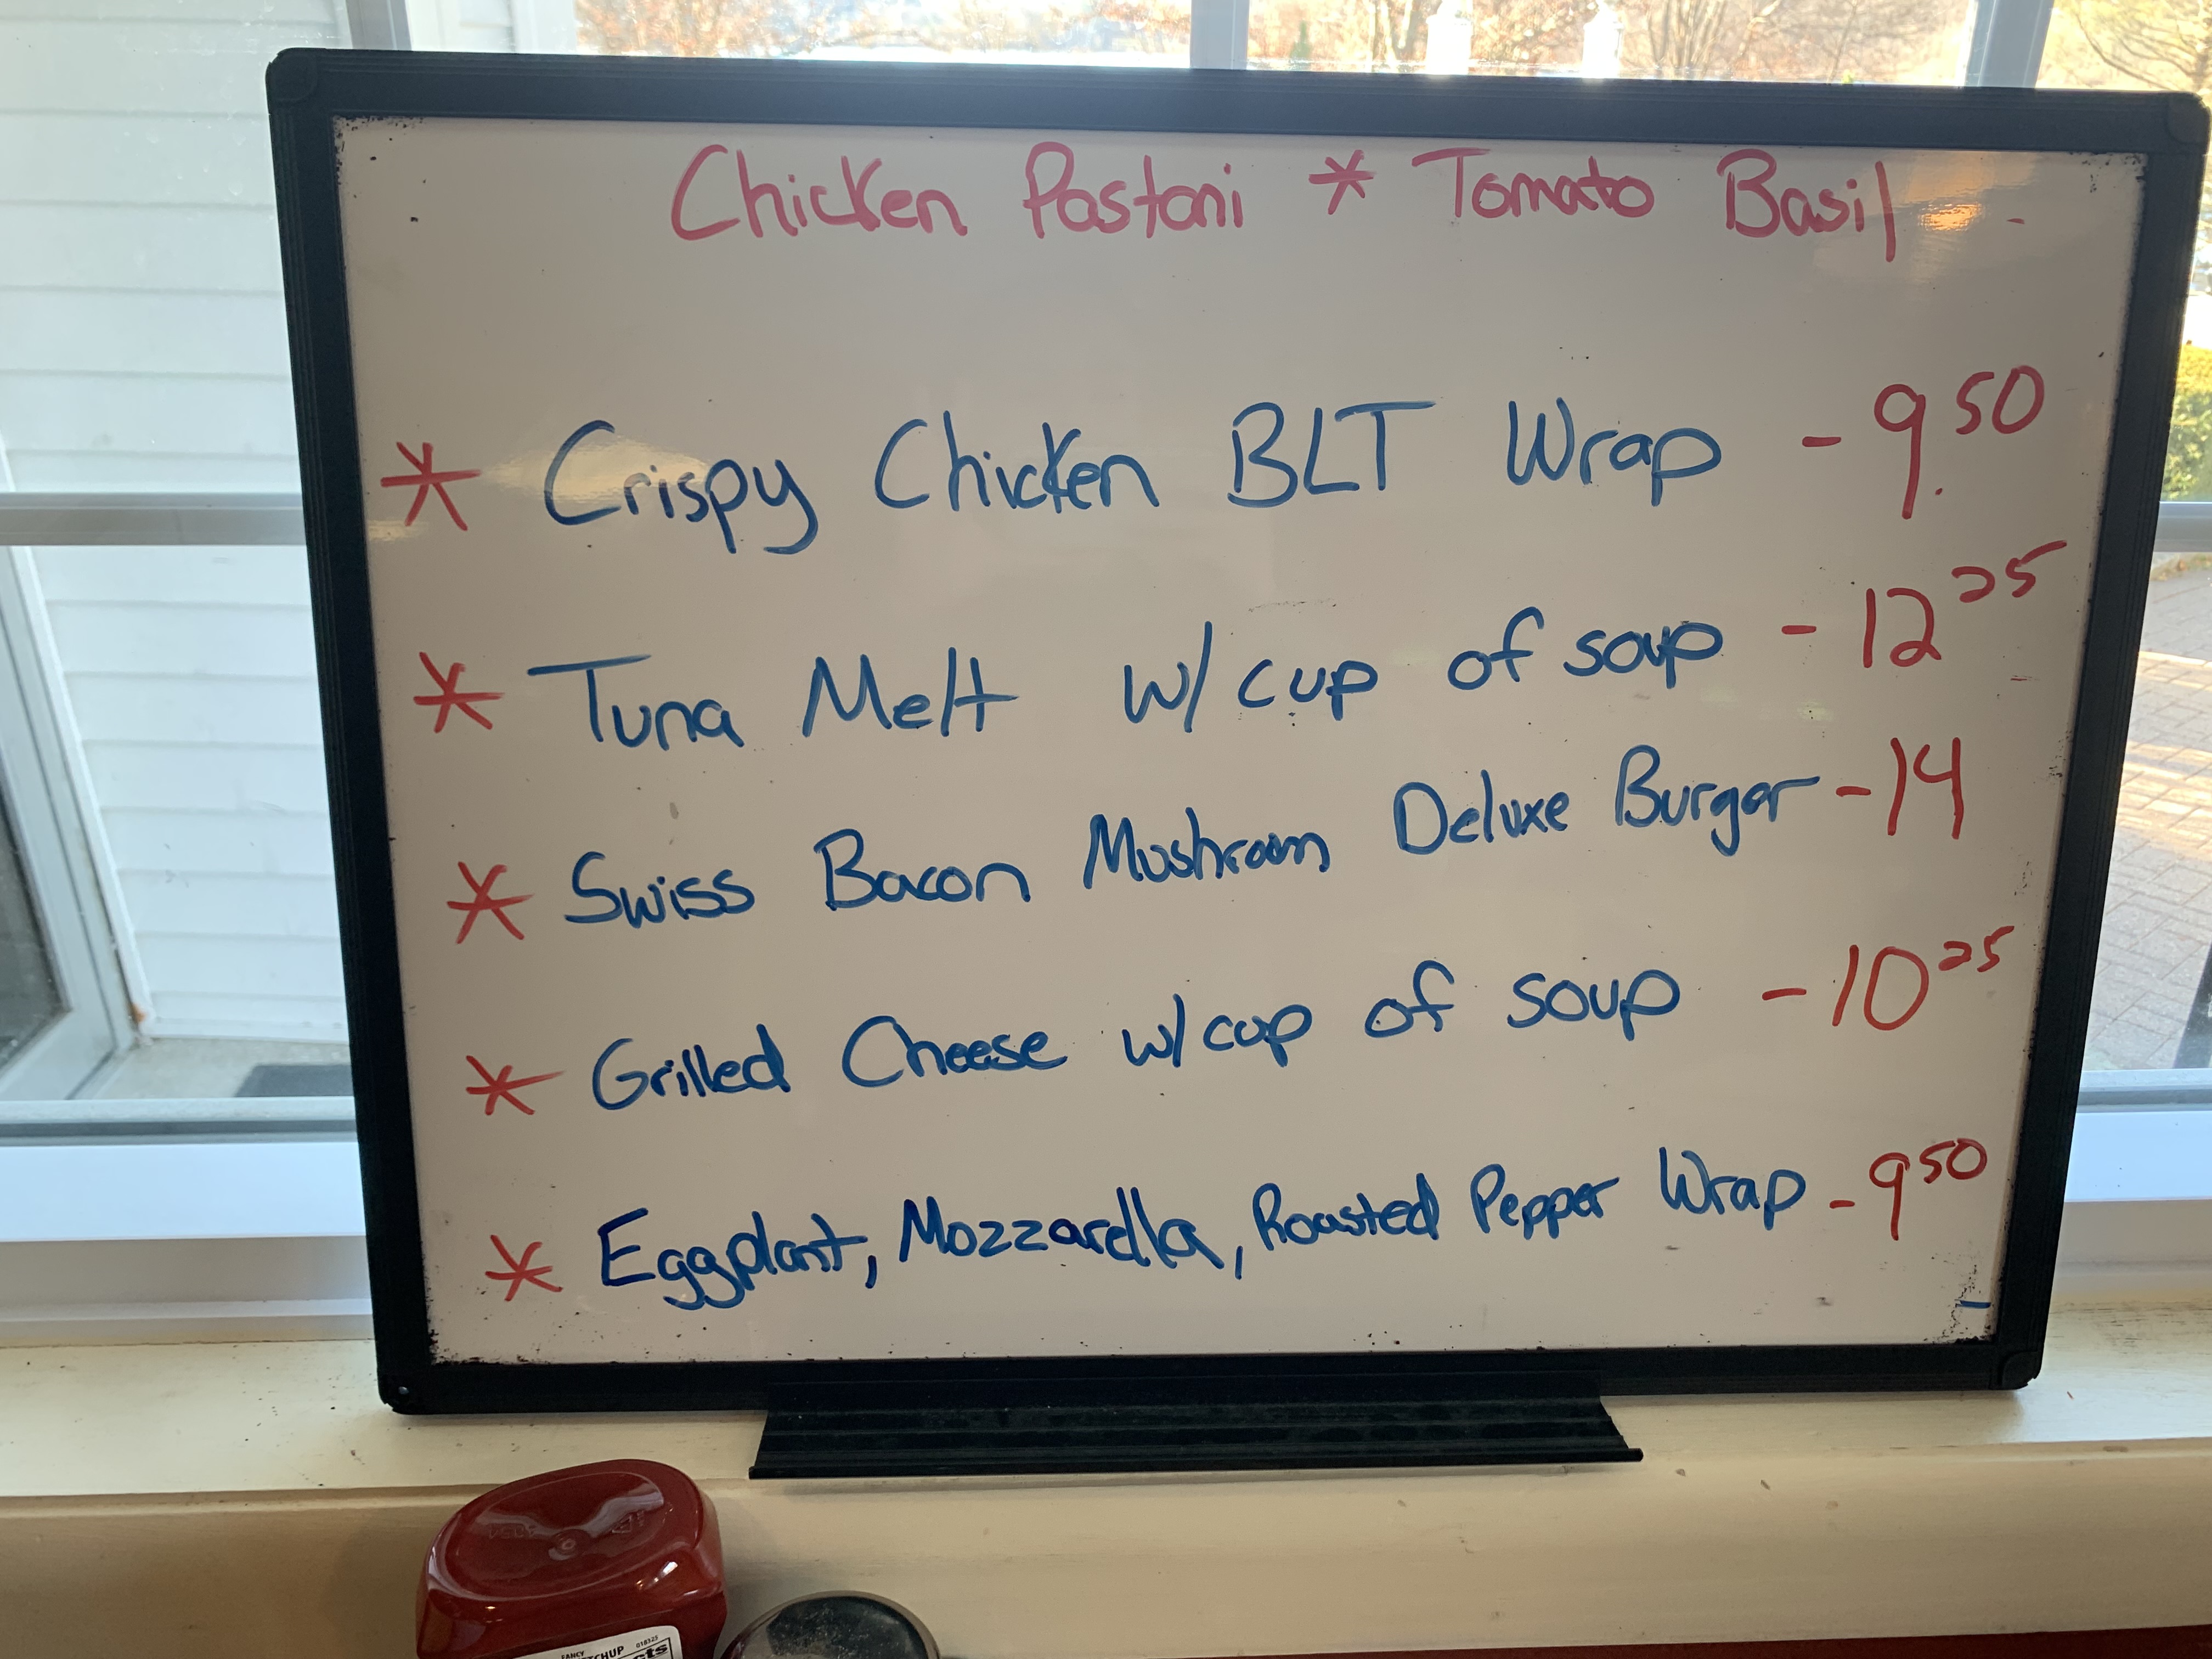 Chicken Pastani * Tomato Basil
* Crispy Chicken BLT Wrap - 9.50
* Tuna Melt w/ cup of soup - 12 25
* Swiss Bacon Mushroom Deluxe Burger - 14
* Grilled Cheese w/ cup of soup - 10 25
* Eggplant, Mozzarella, Roasted Pepper Wrap - 9 50
FANCY
018325